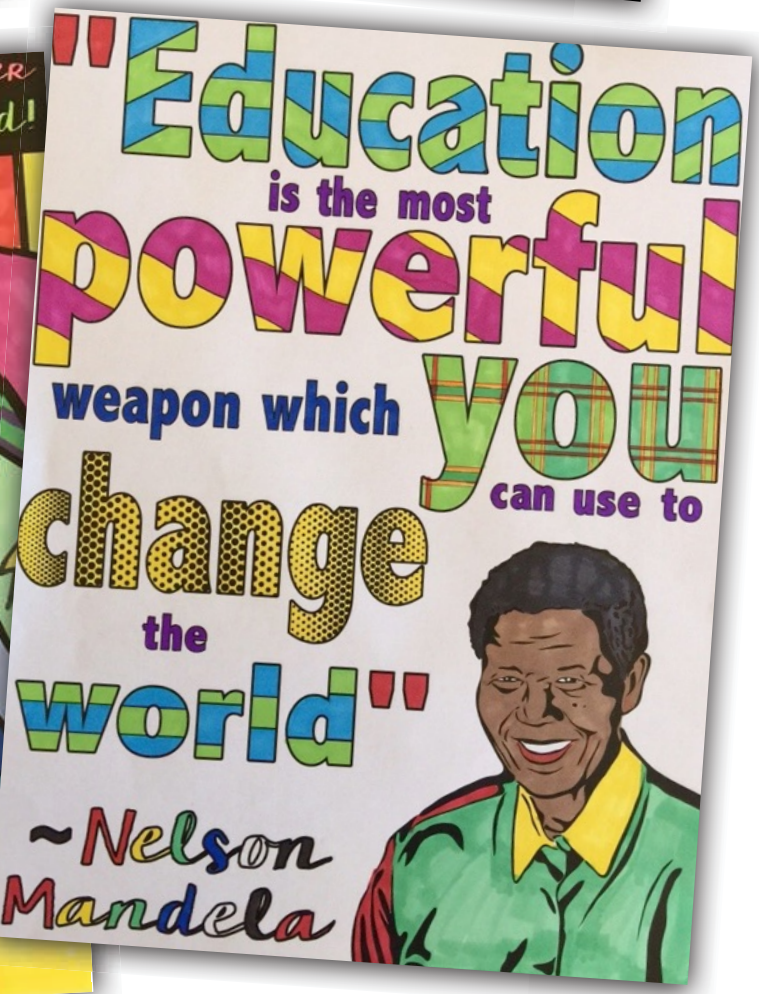 "Education
is the most
powerful
weapon which you
can use to
change
the
world"
~Nelson
Mandela